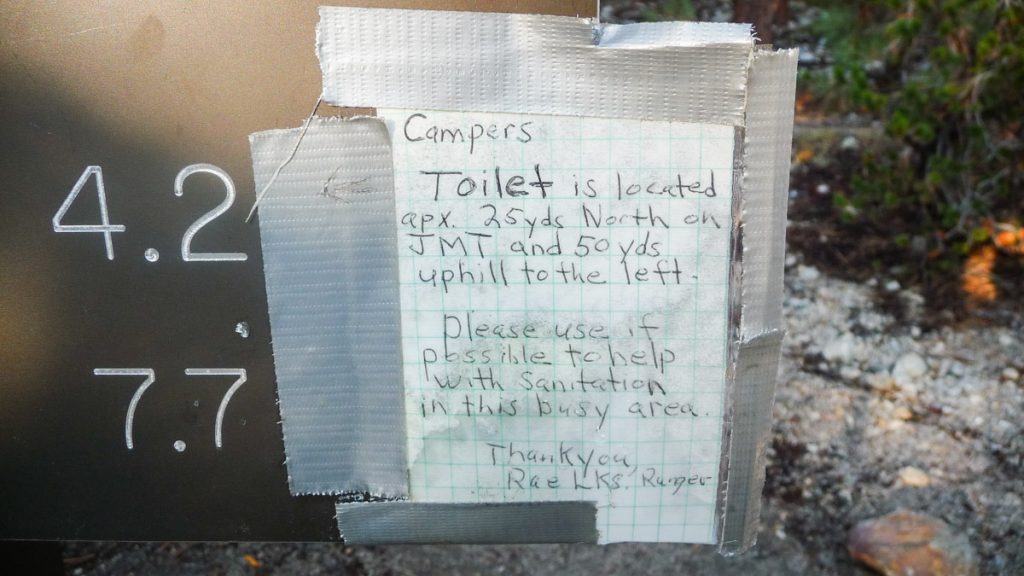 4.2
7.7
Campers
Toilet is located
apx. 25yds North on
JMT and 50 yds
uphill to the left.
please use if
possible to help
with Sanitation
in this busy area.
Thankyou,
Rae LKs. Ranger